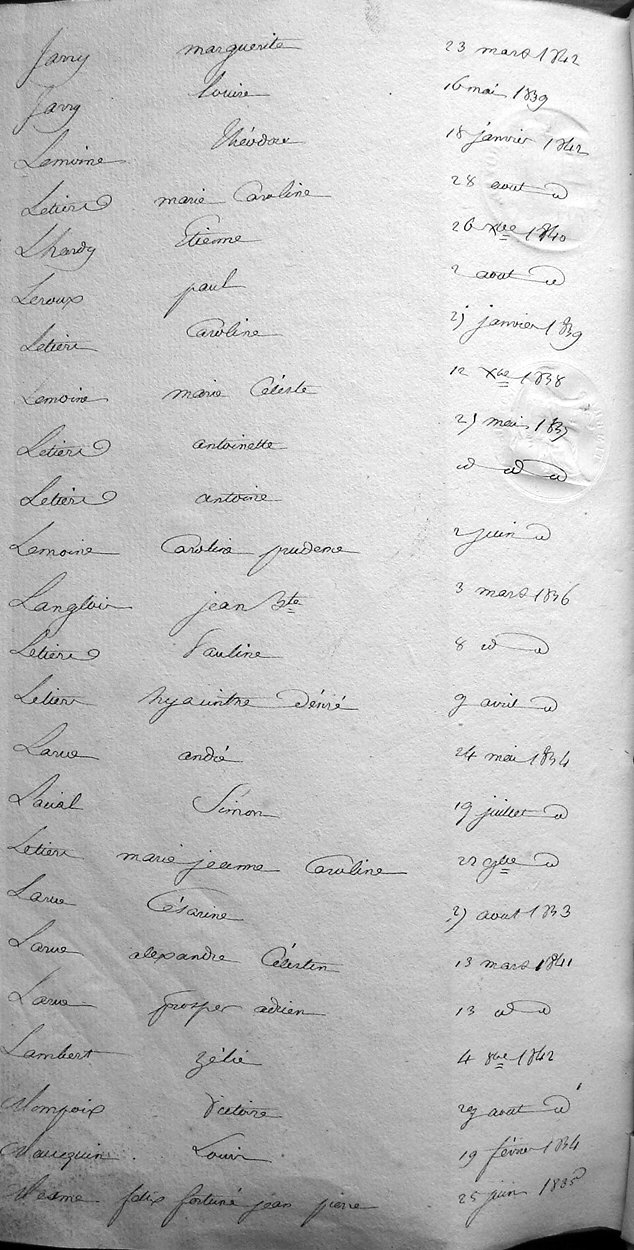 Jarry marguerite 23 mars 1842
Jarry louise 16 mai 1839
Lemoine théodore 18 janvier 1842
Letiere marie Caroline 28 aout d
Lhardy Etienne 26 xbre 1840
Leroux paul 2 aout d
Letiere Caroline 25 janvier 1839
Lemoine marie Céleste 12 xbre 1838
Letiere antoinette mai 1837
Letiere antoine d d d
Lemoine Caroline prudence 2 juin d
Langlois jean Bte 3 mars 1836
Letiere Pauline 8 d d
Letiere hyacinthe Désiré 9 avril d
Larue andré 24 mai 1834
Simon 19 juillet d
Letiere marie jeanne Caroline 9bre d
Larue Césarine aout 1833
Larue alexandre Célestin 13 mars 1841
Larue prosper adrien 13 d d
Lambert zélie 4 8bre 1842
Mompoix Victoire 29 aout d
Mauequin Louis 19 février 1834
Mesme felix fortuné jean pierre 25 juin 1835